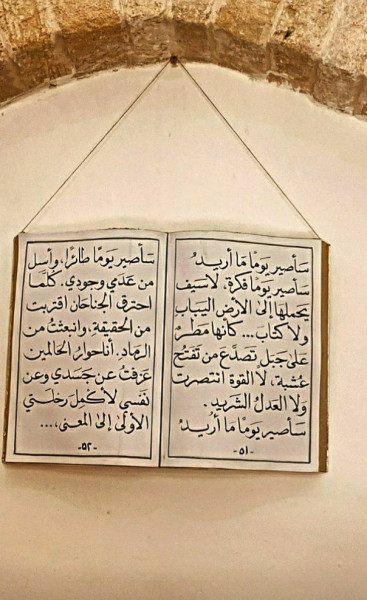 سَأصير يَوْمًا مَا أُريدُ
سَأصير يَوْمًا فكرةً. لَا سَيف
يَحملُهَا إلَى الأرضِ اليَبَابِ
ولَا كتابَ... كَأنهَا مَطَرٌ
عَلى جَبَلٍ تَصَدَّعَ من تَفَتُّح
عُشبَةٍ. لَا القوة انتصرتْ
وَلَا العَدلُ الشريدِ.
سَأصير يَوْمًا مَا أُريدُ
-٥١-
سَأصير يَوْمًا طائرًا، وأسل
من عَدَمي وجودي. كُلَّمَا
احترق الجنَاحَان اقتربت
من الحقيقةِ. وانبعثتُ من
الرمَادِ. أنَا حوارُ الحَالمين
عَزفتُ عن جَسَدي وعن
نفسي لأُكْمِلَ رحْلَتي
الأولَى إلىَ المعنى،...
-٥٢-